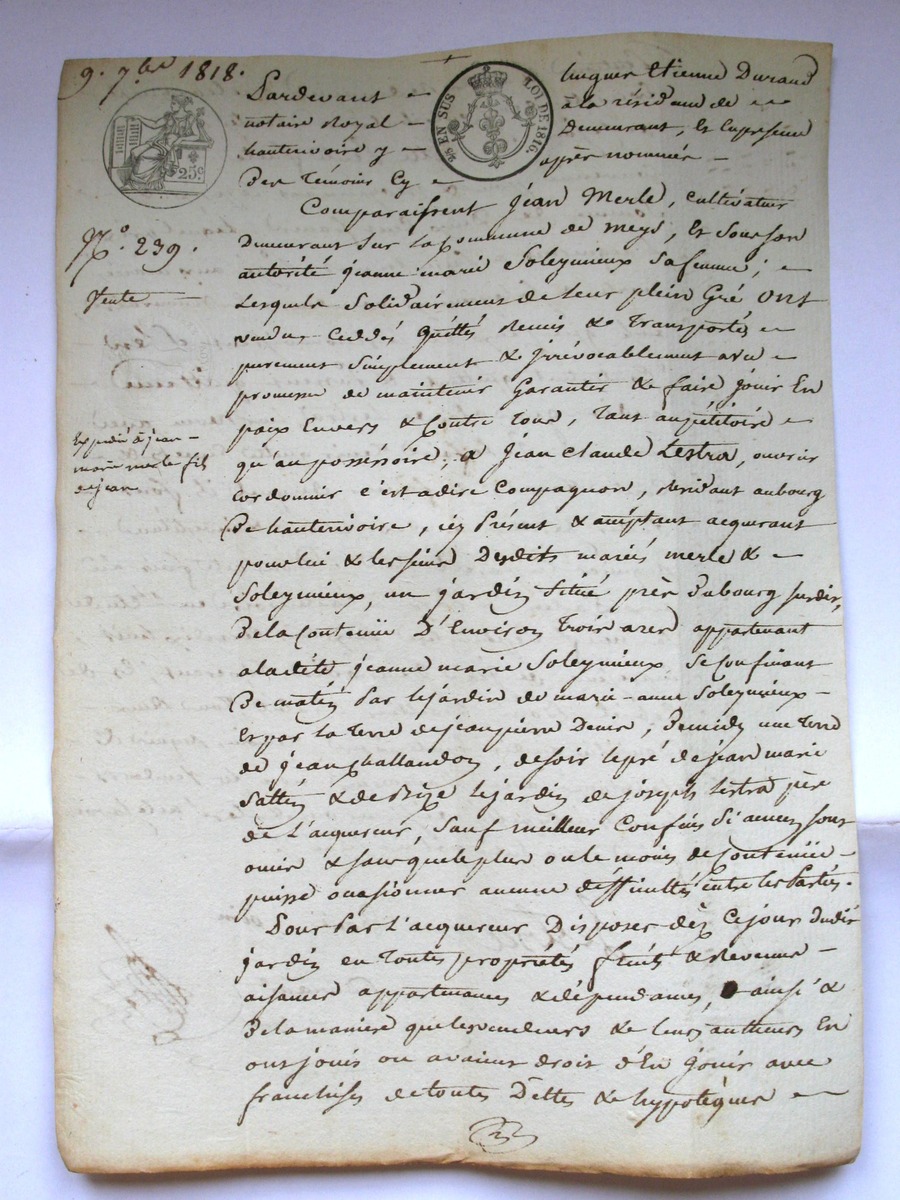 9. 7.bre 1818.
Pardevant hugues Etienne Durand
notaire Royal à la résidence de
hauterivoire y Demeurant, Et En présence
Des Témoins Cy après nommés
25 EN SUS LOI DE 1816.
25c
Comparaissent jean Merle, cultivateur
Demeurant sur la Commune de meys, Et sous son
autorité jeanne marie Soleymieux sa femme ;
Lesquels Solidairement de leur plein Gré Ont
vendu, Ceddés Quittés Remis & Transportés
purement Simplement & jrrévocablement avec
promesse de maintenir Garantir & faire jouir En
paix Envers & Contre Tous, Tant au pétitoire
qu'au possessoire, a jean Claude Lestra, ouvrier
Cordonnier c'est adire Compagnon, Residant aubourg
De hauterivoire, icy Présent & acceptant acquerant
pour lui & les siens Desdits mariés merle &
Soleymieux, un jardin Situé près Dubourg susdit,
De la Contenüe D'Environ Trois ares appartenant
aladite jeanne marie Soleymieux Se Confinant
De matin Par lejardin de marie-anne Soleymieux
Et par la Terre de jean pierre Denis, De midy une Terre
de jean Challandon, de soir le pré de jean marie
& de Bize le jardin de joseph Lestra père
de L'acquereur, Sauf meilleur Confins Si aucuns sont
omis & sans que le plus ou le moins de Contenüe
puisse ocasionner aucune difficultés entre les Parties.
Pour Par L'acquereur Disposer dèz Ce jour dudit
jardin en Toutes propriétés fruits & Revenus
aisances appartenances & dépendances, ainsi &
De la manière que les vendeurs & leurs autheurs En
ont jouis ou avaient droit d'En jouir avec
franchises de toutes Dettes & hypotèques
No. 239.
Vente
Expédié à jean
marie merle fils
de jean